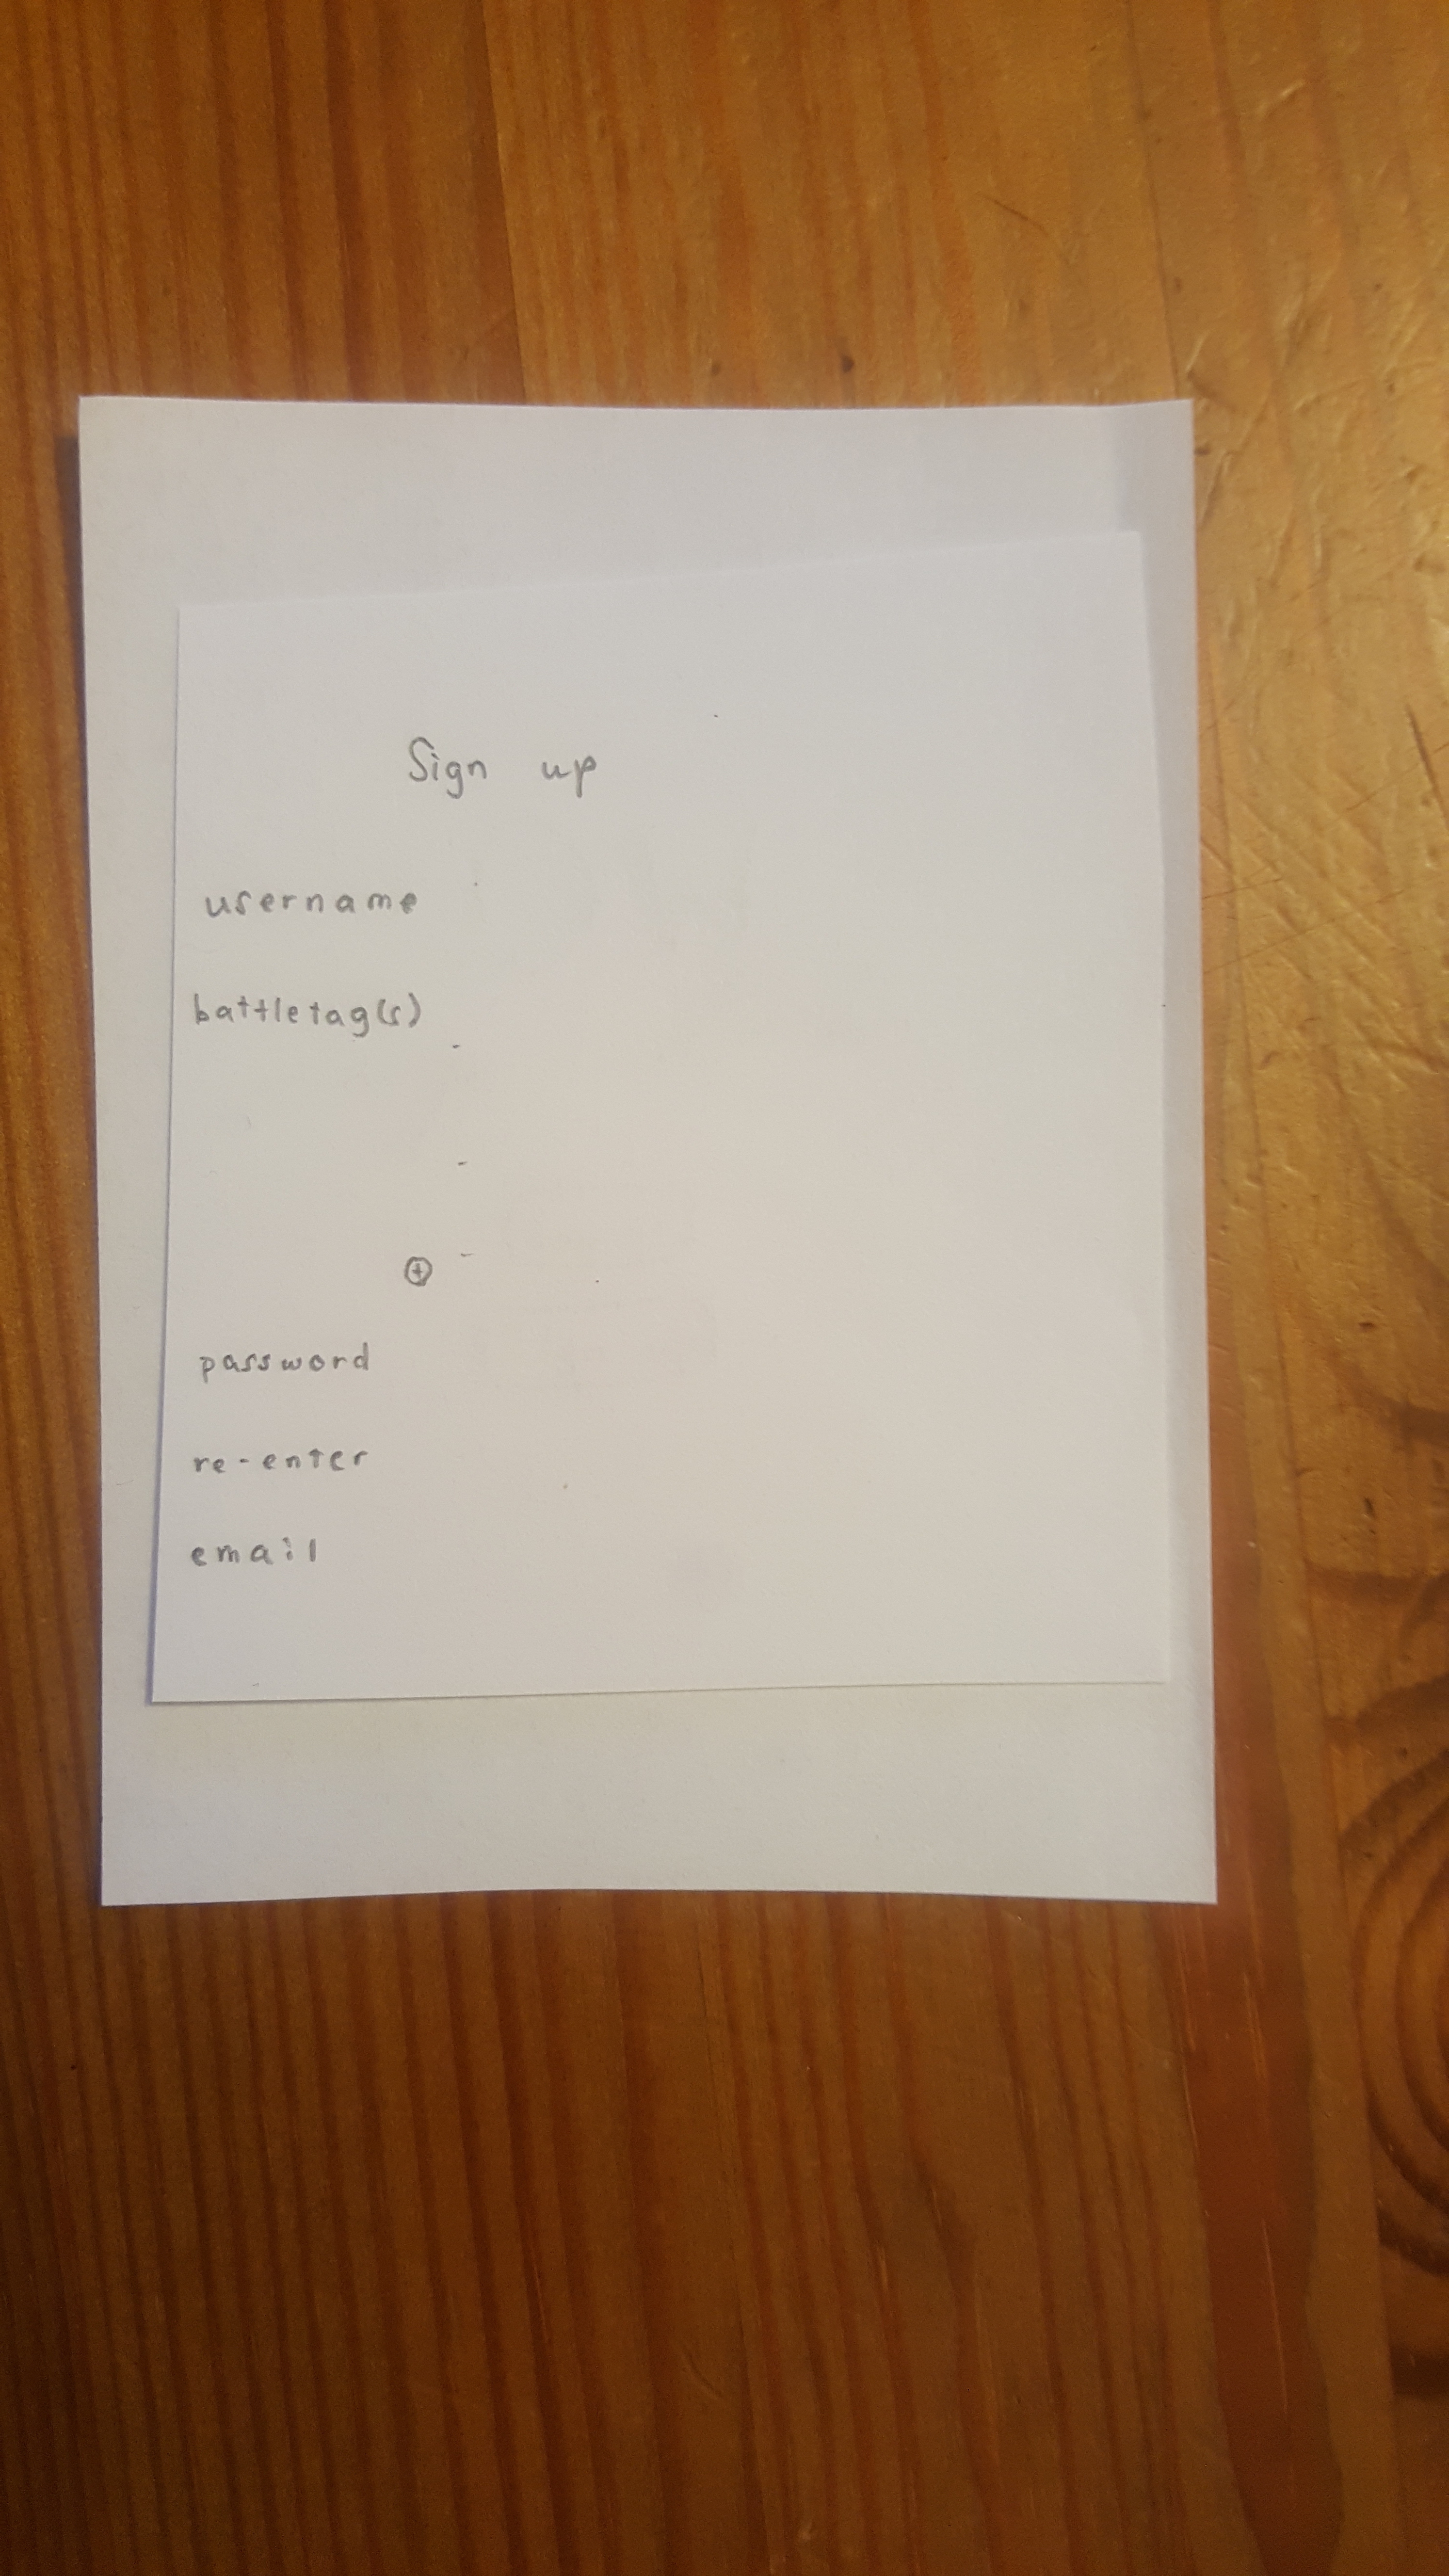 Sign up
username
battletag(s)
-
-
⊕ -
password
re-enter
email